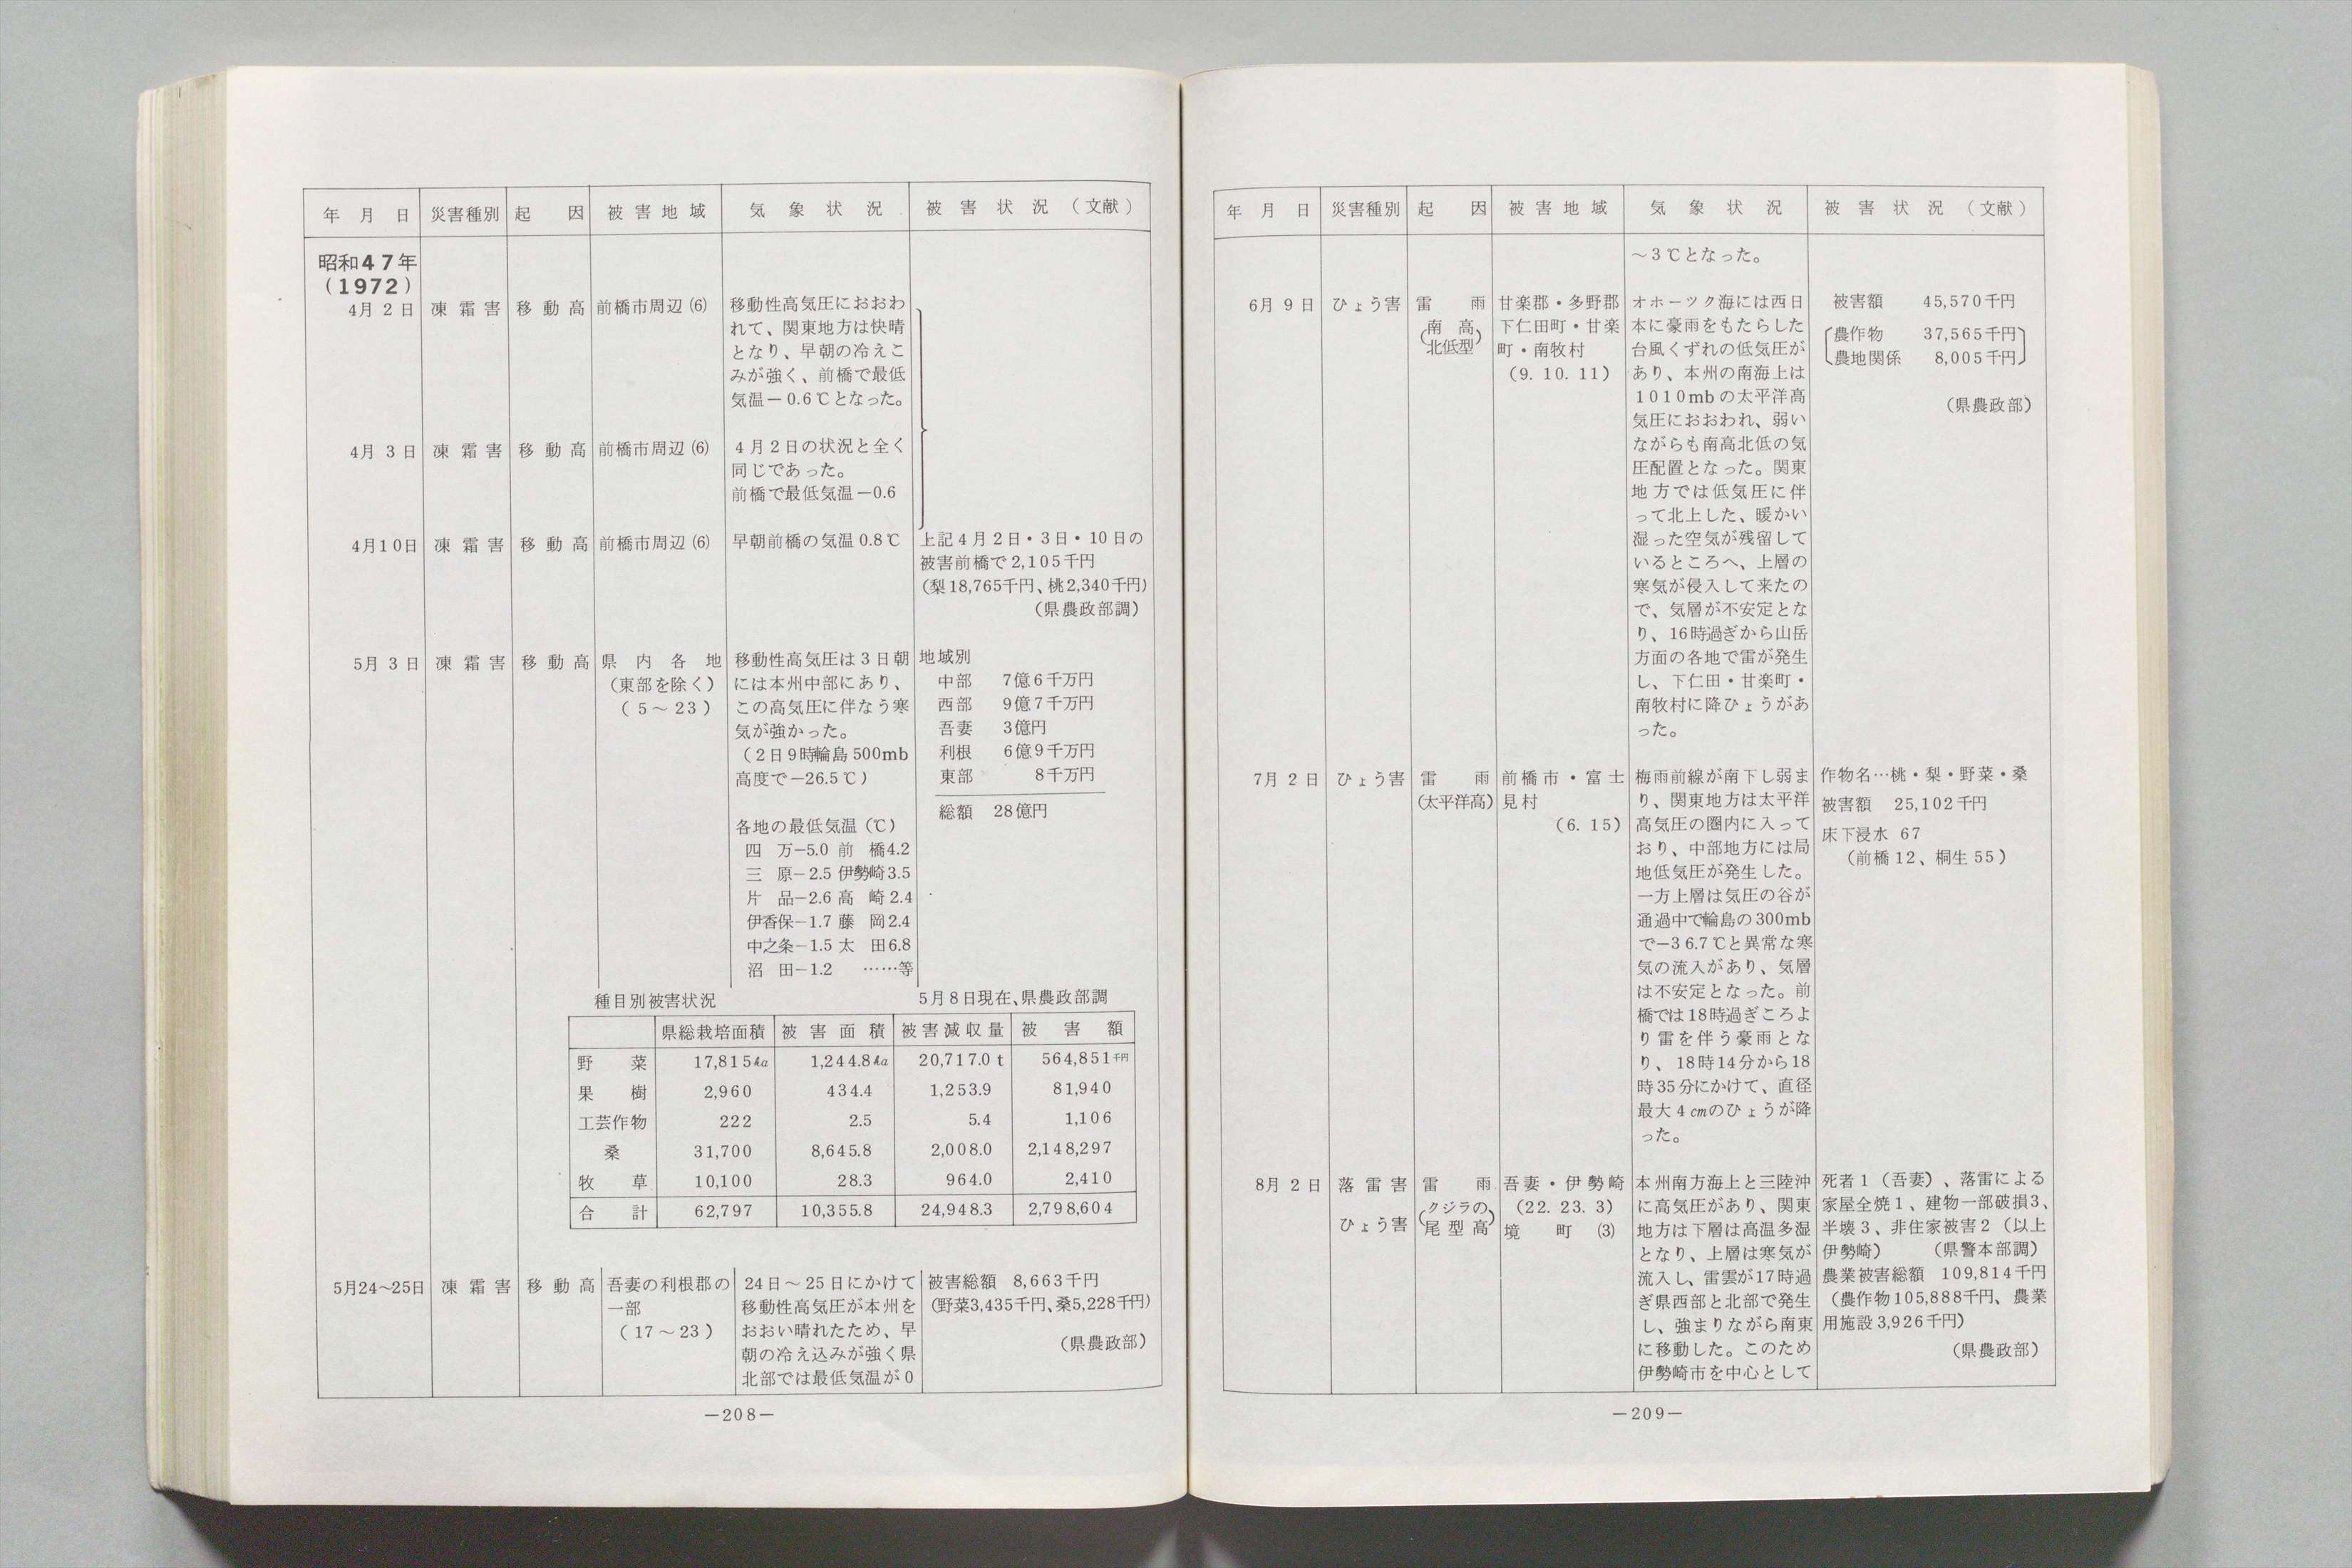 年月日 災害種別 起因 被害地域 気象状況 被害状況（文献）
昭和47年
(1972)
4月2日 凍霜害 移動高 前橋市周辺(6) 移動性高気圧におおわ
れて、関東地方は快晴
となり、早朝の冷えこ
みが強く、前橋で最低
気温－0.6℃となった。
4月3日 凍霜害 移動高 前橋市周辺(6) 4月2日の状況と全く
同じであった。
前橋で最低気温－0.6
4月10日 凍霜害 移動高 前橋市周辺(6) 早朝前橋の気温0.8℃ 上記4月2日・3日・10日の
被害前橋で2,105千円
(梨18,765千円、桃2,340千円)
（県農政部調）
5月3日 凍霜害 移動高 県内各地
（東部を除く）
（5～23）
移動性高気圧は3日朝
には本州中部にあり、
この高気圧に伴なう寒
気が強かった。
（2日9時輪島500mb
高度で－26.5℃）
各地の最低気温（℃）
四万－5.0 前橋4.2
三原－2.5 伊勢崎3.5
片品－2.6 高崎2.4
伊香保－1.7 藤岡2.4
中之条－1.5 太田6.8
沼田－1.2 ……等
地域別
中部 7億6千万円
西部 9億7千万円
吾妻 3億円
利根 6億9千万円
東部 8千万円
総額 28億円
種目別被害状況 5月8日現在、県農政部調
県総栽培面積 被害面積 被害減収量 被害額
野菜 17,815ha 1,244.8ha 20,717.0t 564,851千円
果樹 2,960 434.4 1,253.9 81,940
工芸作物 222 2.5 5.4 1,106
桑 31,700 8,645.8 2,008.0 2,148,297
牧草 10,100 28.3 964.0 2,410
合計 62,797 10,355.8 24,948.3 2,798,604
5月24～25日 凍霜害 移動高 吾妻の利根郡の
一部
（17～23）
24日～25日にかけて
移動性高気圧が本州を
おおい晴れたため、早
朝の冷え込みが強く県
北部では最低気温が0
被害総額 8,663千円
(野菜3,435千円、桑5,228千円)
（県農政部）
－208－
年月日 災害種別 起因 被害地域 気象状況 被害状況（文献）
～3℃となった。
6月9日 ひょう害 雷雨
(南高
北低型)
甘楽郡・多野郡
下仁田町・甘楽
町・南牧村
（9. 10. 11）
オホーツク海には西日
本に豪雨をもたらした
台風くずれの低気圧が
あり、本州の南海上は
1010mbの太平洋高
気圧におおわれ、弱い
ながらも南高北低の気
圧配置となった。関東
地方では低気圧に伴
って北上した、暖かい
湿った空気が残留して
いるところへ、上層の
寒気が侵入して来たの
で、気層が不安定とな
り、16時過ぎから山岳
方面の各地で雷が発生
し、下仁田・甘楽町・
南牧村に降ひょうがあ
った。
被害額 45,570千円
農作物 37,565千円
農地関係 8,005千円
（県農政部）
7月2日 ひょう害 雷雨
(太平洋高)
前橋市・富士
見村
（6. 15）
梅雨前線が南下し弱ま
り、関東地方は太平洋
高気圧の圏内に入って
おり、中部地方には局
地低気圧が発生した。
一方上層は気圧の谷が
通過中で輪島の300mb
で－36.7℃と異常な寒
気の流入があり、気層
は不安定となった。前
橋では18時過ぎころよ
り雷を伴う豪雨とな
り、18時14分から18
時35分にかけて、直径
最大4cmのひょうが降
った。
作物名…桃・梨・野菜・桑
被害額 25,102千円
床下浸水 67
（前橋12、桐生55）
8月2日 落雷害
ひょう害
雷雨
(クジラの
尾型高)
吾妻・伊勢崎
（22. 23. 3）
境町 (3)
本州南方海上と三陸沖
に高気圧があり、関東
地方は下層は高温多湿
となり、上層は寒気が
流入し、雷雲が17時過
ぎ県西部と北部で発生
し、強まりながら南東
に移動した。このため
伊勢崎市を中心として
死者1（吾妻）、落雷による
家屋全焼1、建物一部破損3、
半壊3、非住家被害2（以上
伊勢崎） （県警本部調）
農業被害総額 109,814千円
（農作物105,888千円、農業
用施設3,926千円）
（県農政部）
－209－